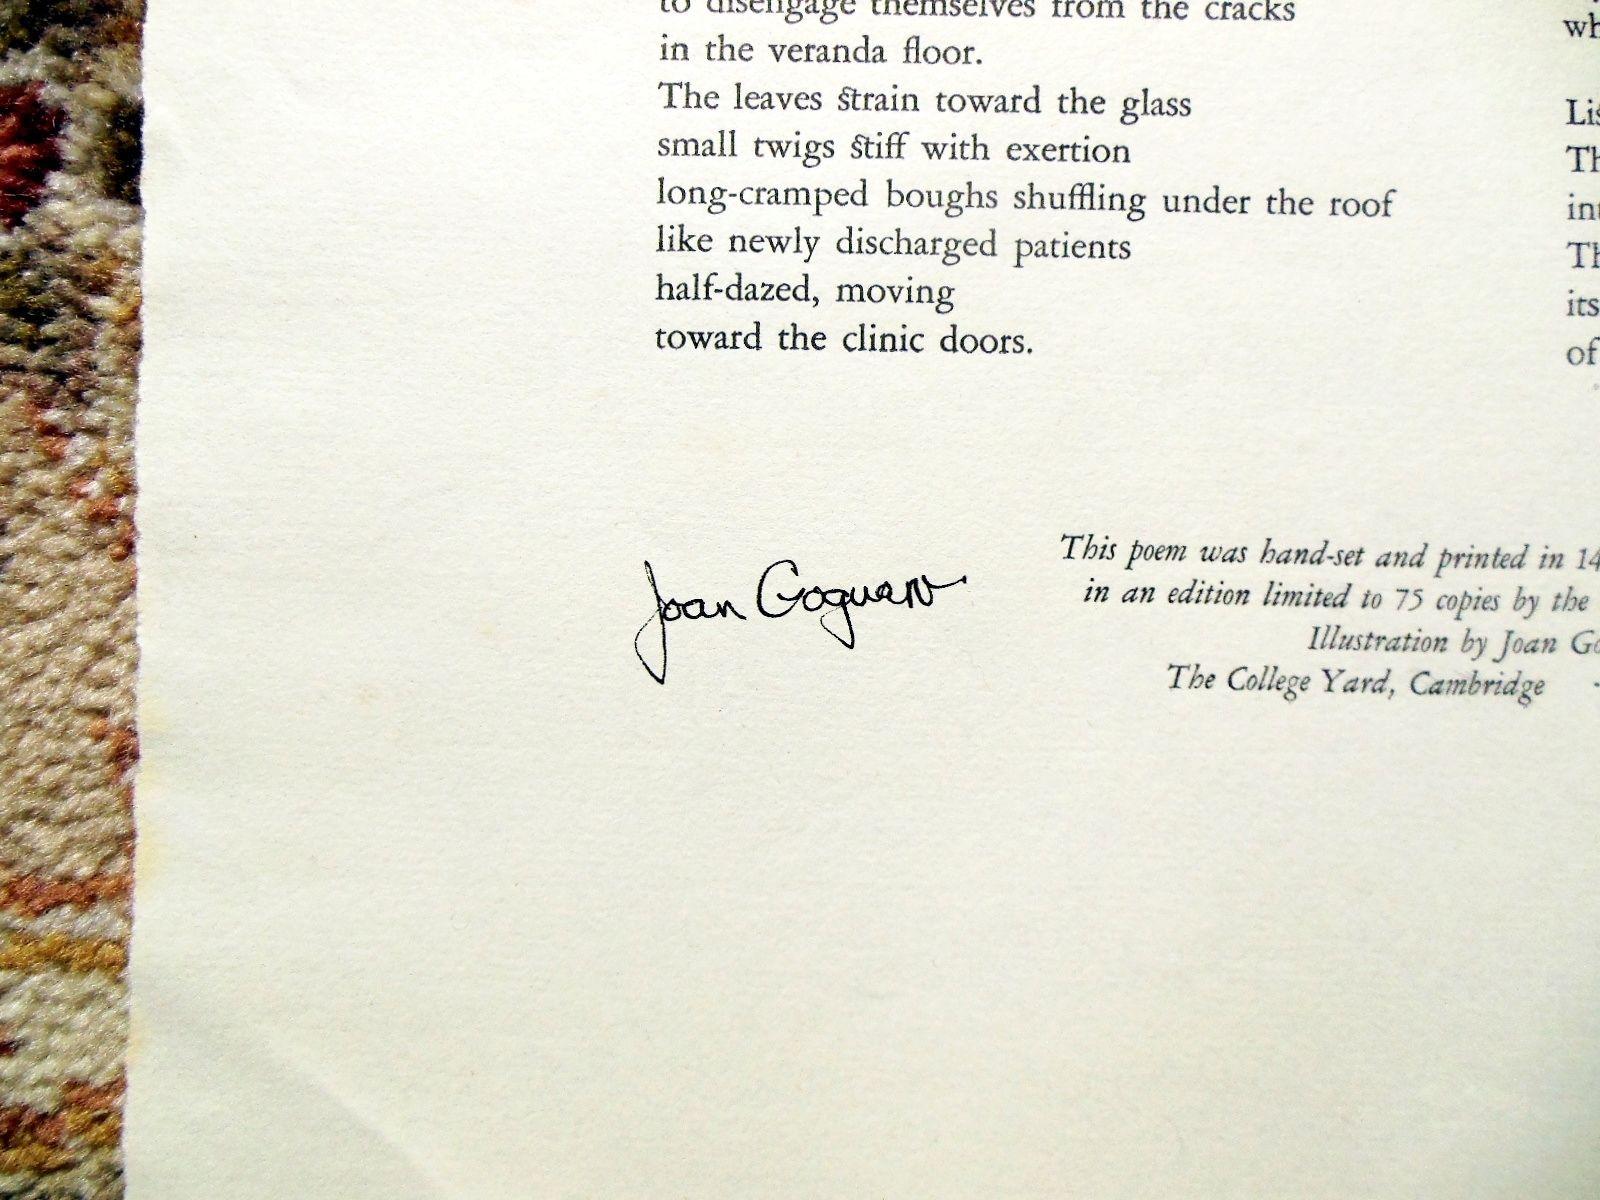 to disengage themselves from the cracks
in the veranda floor.
The leaves strain toward the glass
small twigs stiff with exertion
long-cramped boughs shuffling under the roof
like newly discharged patients
half-dazed, moving
toward the clinic doors.
wh
Lis
Th
int
Th
its
of
Joan
This poem was hand-set and printed in 14
in an edition limited to 75 copies by the
Illustration by Joan Go
The College Yard, Cambridge